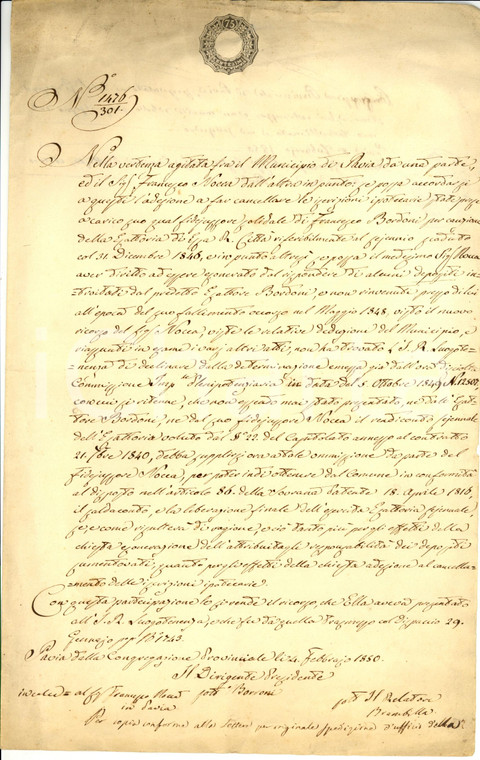 75
N.° 1476/301
Nella vertenza agitata fra il Municipio di Pavia da una parte,
ed il Sig.r Francesco Nocca dall'altra in punto se possa accordarsi
a questi l'adesione a far cancellare le iscrizioni ipotecarie, state prese
a carico suo qual fidejussore solidale di Francesco Bordoni per cauzione
della Esattoria di essa R. Città riferibilmente al sejennio scaduto
col 31. Dicembre 1846, e in punto altresì se possa il medesimo Sig.r Nocca
aver diritto ad essere esonerato dal rispondere di alcuni depositi in-
troitati dal predetto Esattore Bordoni, e non rinvenuti presso di lui
all'epoca del suo fallimento occorso nel Maggio 1848, visto il nuovo
ricorso del Sig.r Nocca, viste le relative deduzioni del Municipio, e
in esame i varj altri atti, non ha trovato l'I. R. Luogote-
nenza di declinare dalla determinazione emessa già dall'ora disciolta
Commissione Imp.e Plenipotenziaria in data del 3. Ottobre 1849 N. 12507,
con cui si ritenne, che non essendo mai stato presentato, nè dall'Esat-
tore Bordoni, nè dal suo fidejussore Nocca il rendiconto sejennale
dell'Esattoria voluto dal § 22. del Capitolato annesso al contratto
21. 7bre 1840, debba supplirsi ora a tale ommissione da parte del
fidejussore Nocca, per poter indi ottenere dal Comune in conformità
al disposto nell'articolo 86. della Sovrana Patente 18. Aprile 1816,
il saldaconto, e la liberazione finale dell'esercita Esattoria sejennale,
se e come risulterà di ragione, e ciò tanto più per gli effetti della
chiesta esonerazione dell'attribuitagli risponsabilità dei depositi
summentovati, quanto per gli effetti della chiesta adesione al cancella-
mento delle iscrizioni ipotecarie.
Con questa partecipazione le si rende il ricorso, che Ella aveva presentato
all'I. R. Luogotenenza, e che fu da quella trasmesso col dispaccio 29.
Gennajo pp. N. 1243.
Pavia dalla Congregazione Provinciale li 4. Febbrajo 1850.
Il Dirigente Presidente
Borroni
Il Relatore
Brambilla
al Sig.r Francesco
in Pavia
Per copia conforme alla lettera per originale spedizione d'ufficio della